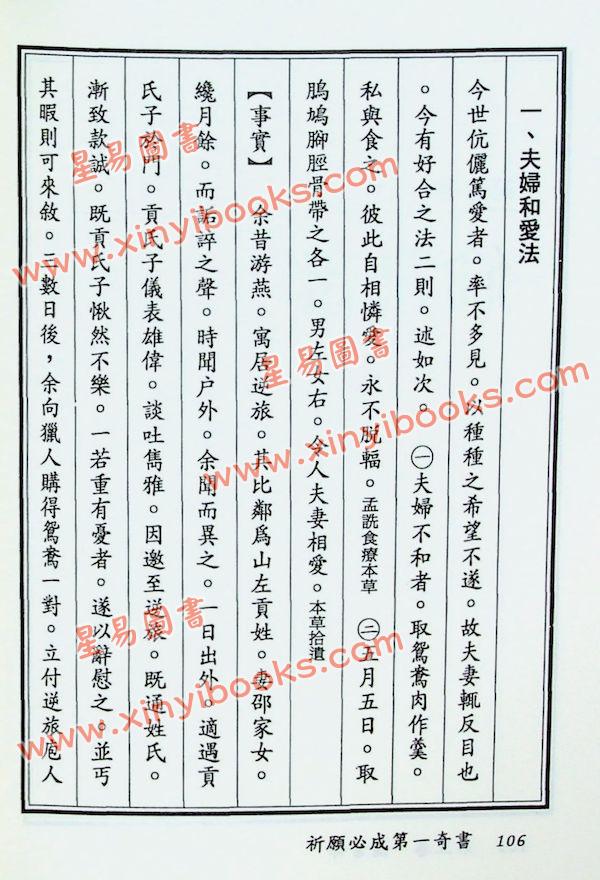 一、夫婦和愛法
今世伉儷篤愛者。率不多見。以種種之希望不遂。故夫妻輒反目也
。今有好合之法二則。述如次。㊀夫婦不和者。取鴛鴦肉作羹。
私與食之。彼此自相憐愛。永不脫輻。孟詵食療本草 ㊁五月五日。取
鳲鳩腳脛骨帶之各一。男左女右。令人夫妻相愛。本草拾遺
【事實】 余昔游燕。寓居逆旅。其比鄰為山左貢姓。妻邵家女。
纔月餘。而詬誶之聲。時聞户外。余聞而異之。一日出外。適遇貢
氏子於門。貢氏子儀表雄偉。談吐雋雅。因邀至逆旅。既通姓氏。
漸致款誠。既貢氏子愀然不樂。一若重有憂者。遂以辭慰之。並丐
其暇則可來敘。三數日後，余向獵人購得鴛鴦一對。立付逆旅庖人
祈願必成第一奇書 106
星易圖書
www.xinyibooks.com
星易圖書
www.xinyibooks.com
星易圖書
www.xinyibooks.com